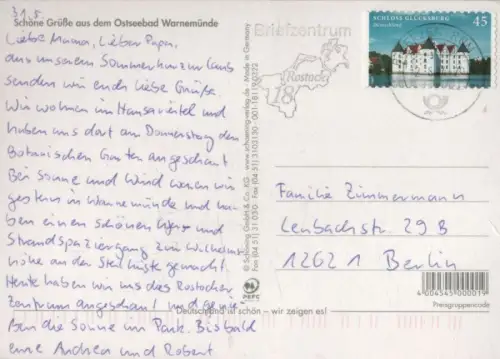 31.5
Schöne Grüße aus dem Ostseebad Warnemünde
Liebe Mama, Lieber Papa,
aus unserem Sommerkurzurlaub
senden wir euch liebe Grüße.
Wir wohnen im Hansaviertel und
haben uns dort am Donnerstag den
Botanischen Garten angeschaut
Bei Sonne und Wind waren wir
gestern in Warnemünde und ha-
ben einen schönen
Strandspaziergang zur Wilhelms-
höhe an der Steilküste gemacht.
Heute haben wir uns das Rostocker
Zentrum angeschaut und genie-
ßen die Sonne im Park. Bis bald
eure Andrea und Robert
Deutschland ist schön – wir zeigen es!
© Schöning GmbH & Co. KG • www.schoening-verlag.de • Made in Germany
Briefzentrum
Rostock
18
SCHLOSS GLÜCKSBURG
45
Familie Zimmermann
Lenbachstr. 29B
12621 Berlin
4 004545 000019
Preisgruppencode
PEFC